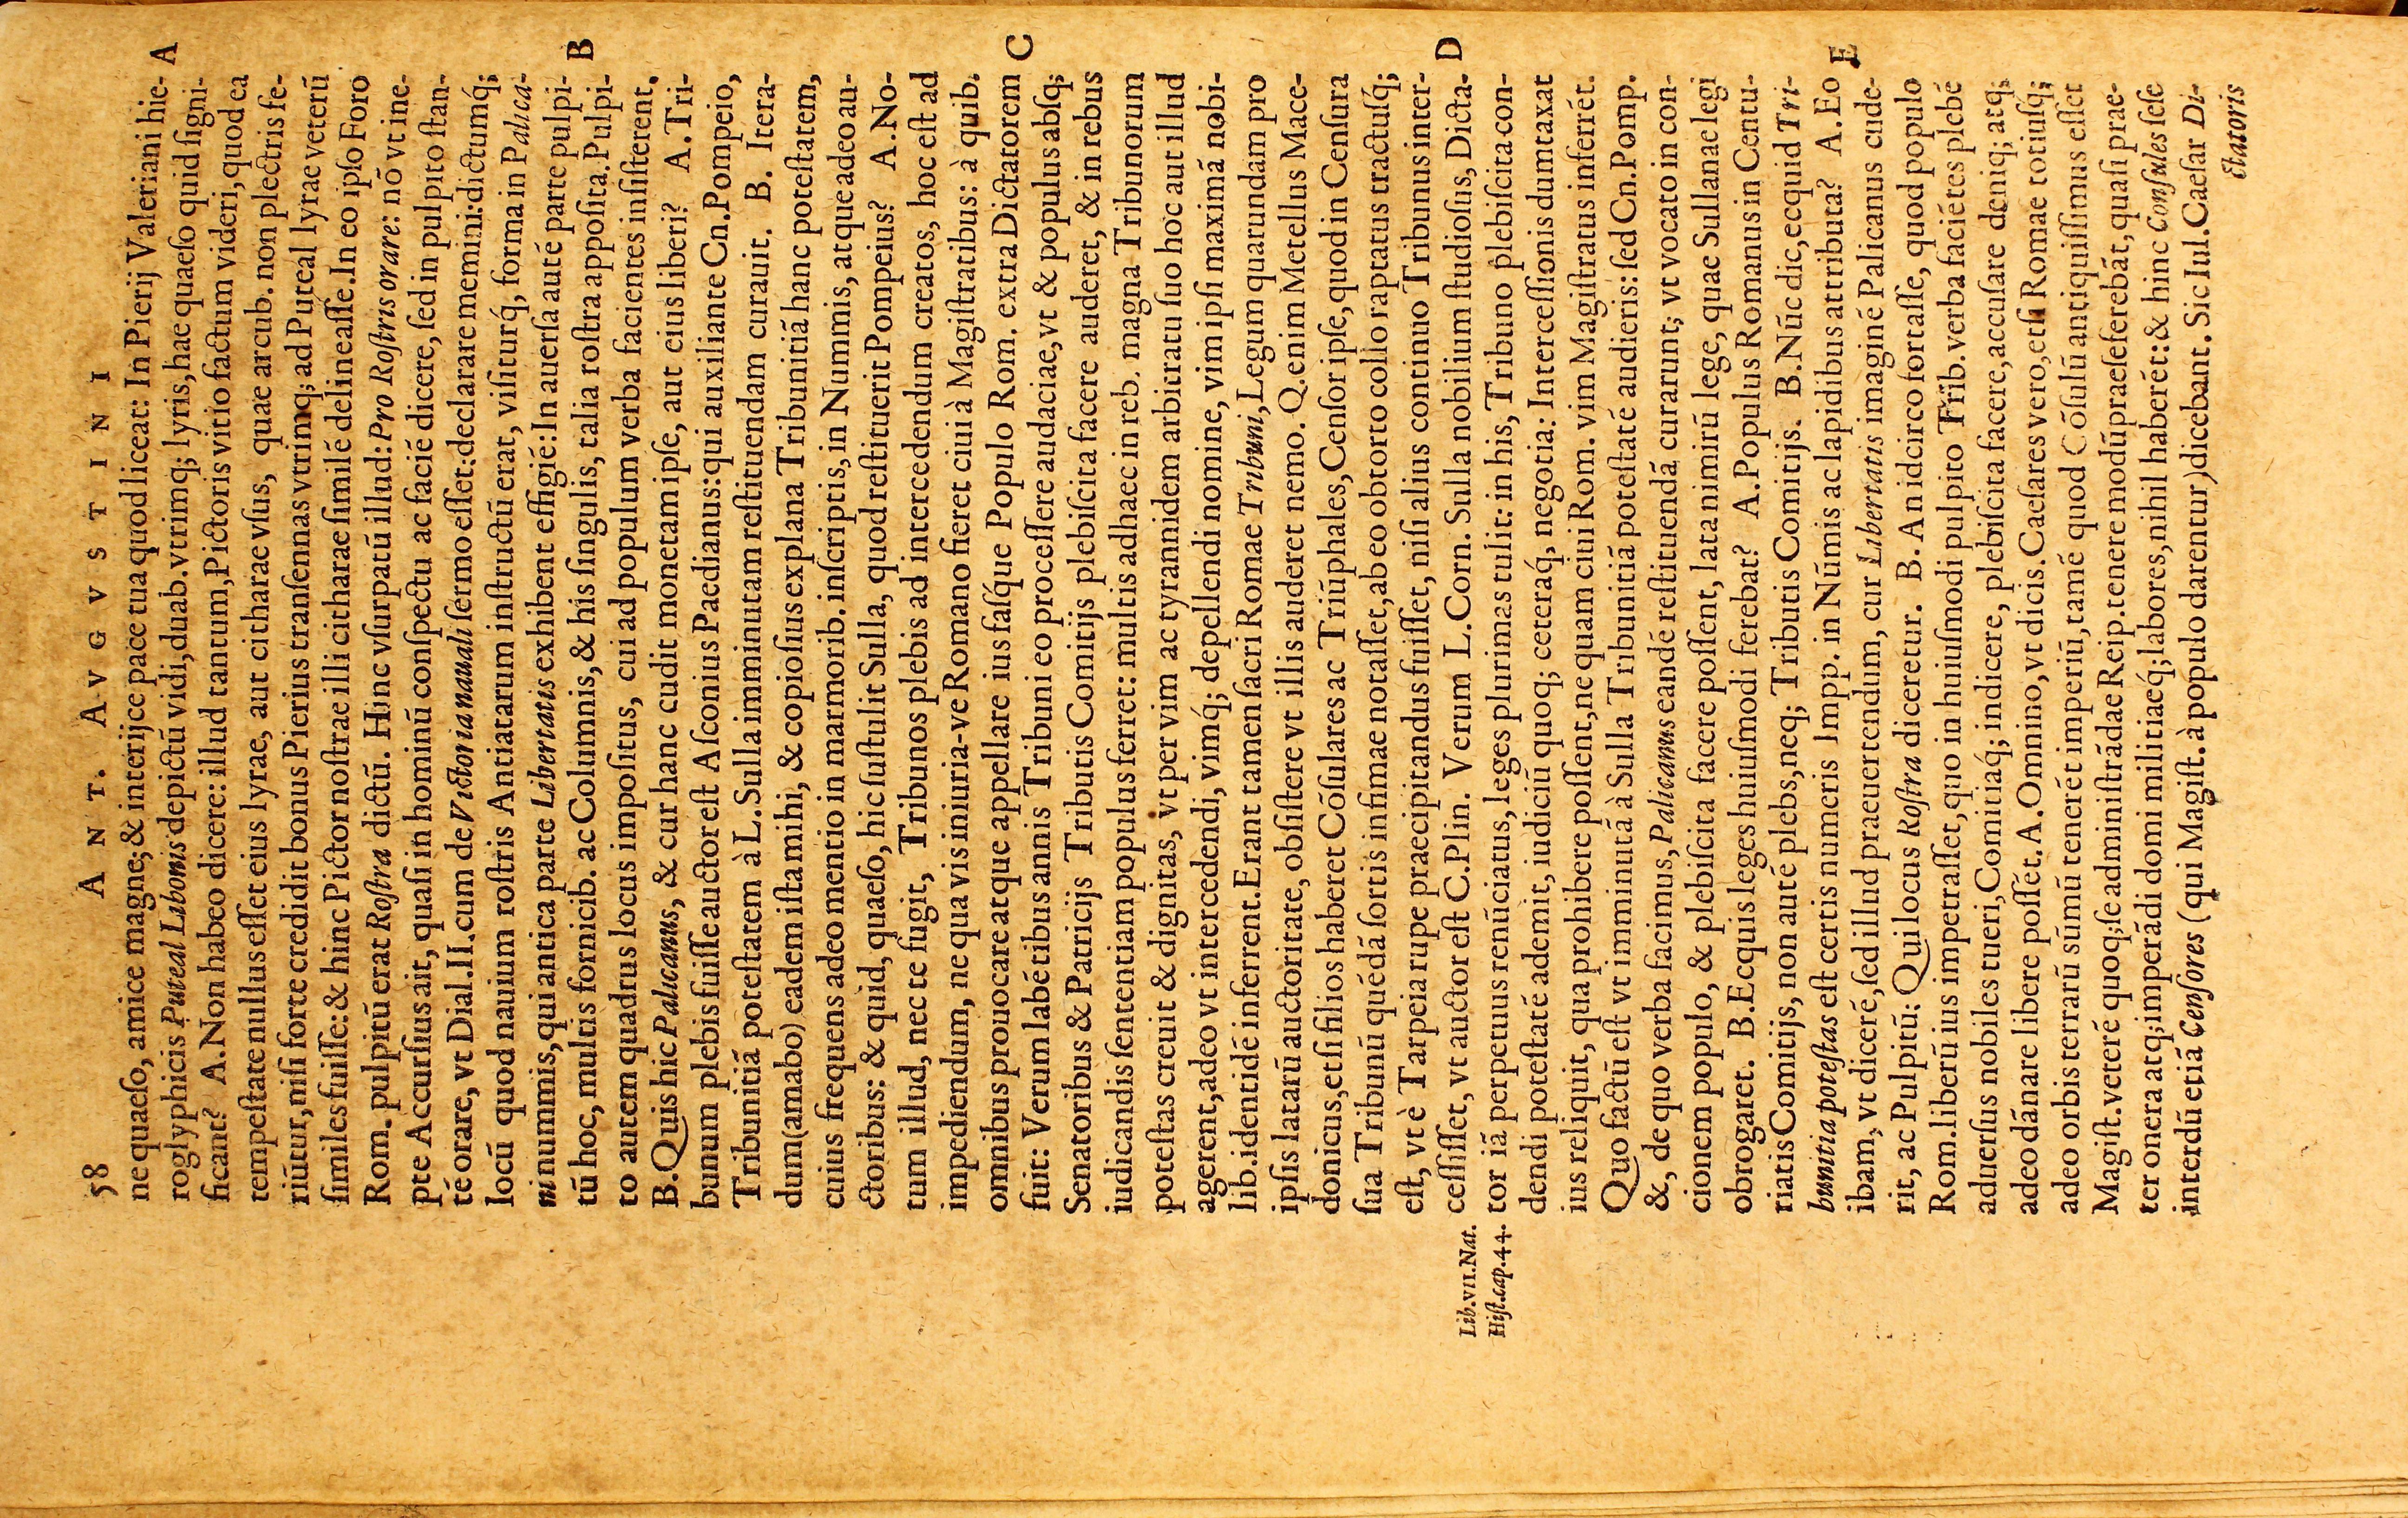 58 ANT. AVGVSTINI
ne quaeſo, amice magne; & interijce pace tua quod liceat: In Pierij Valeriani hie- A
roglyphicis Puteal Libonis depictũ vidi, duab. vtrimq; lyris, hae quaeſo quid ſigni-
ficant? A. Non habeo dicere: illud tantum, Pictoris vitio factum videri, quod ea
tempeſtate nullus eſſet eius lyrae, aut citharae vſus, quae arcub. non plectris fe-
riũtur, niſi forte credidit bonus Pierius tranſennas vtrimq; ad Puteal lyrae veterũ
ſimiles fuiſſe: & hinc Pictor noſtrae illi citharae ſimilé delineaſſe. In eo ipſo Foro
Rom. pulpitũ erat Roſtra dictũ. Hinc vſurpatũ illud: Pro Roſtris orare: nõ vt ine-
pte Accurſius ait, quaſi in hominũ conſpectu ac facié dicere, ſed in pulpito ſtan-
té orare, vt Dial. II. cum de Victoria nauali ſermo eſſet: declarare memini: dictumq́;
locũ quod nauium roſtris Antiatarum inſtructũ erat, viſiturq́, forma in Palica-
ni nummis, qui antica parte Libertatis exhibent effigié: In auerſa auté parte pulpi- B
tũ hoc, multis fornicib. ac Columnis, & his ſingulis, talia roſtra appoſita. Pulpi-
to autem quadrus locus impoſitus, cui ad populum verba facientes inſiſterent.
B. Quis hic Palicanus, & cur hanc cudit monetam ipſe, aut eius liberi? A. Tri-
bunum plebis fuiſſe auctor eſt Aſconius Paedianus: qui auxiliante Cn. Pompeio,
Tribunitiã poteſtatem à L. Sulla imminutam reſtituendam curauit. B. Itera-
dum (amabo) eadem iſta mihi, & copioſius explana Tribunitiã hanc poteſtatem,
cuius frequens adeo mentio in marmorib. inſcriptis, in Nummis, atque adeo au-
ctoribus: & quid, quaeſo, hic ſuſtulit Sulla, quod reſtituerit Pompeius? A. No-
tum illud, nec te fugit, Tribunos plebis ad intercedendum creatos, hoc eſt ad
impediendum, ne qua vis iniuria-ve Romano fieret ciui à Magiſtratibus: à quib.
omnibus prouocare atque appellare ius faſq́ue Populo Rom. extra Dictatorem C
fuit: Verum labétibus annis Tribuni eo proceſſere audaciae, vt & populus abſq;
Senatoribus & Patricijs Tributis Comitijs plebiſcita facere auderet, & in rebus
iudicandis ſententiam populus ferret: multis adhaec in reb. magna Tribunorum
poteſtas creuit & dignitas, vt per vim ac tyrannidem arbitratu ſuo hoc aut illud
agerent, adeo vt intercedendi, vimq́; depellendi nomine, vim ipſi maximã nobi-
lib. identidé inferrent. Erant tamen ſacri Romae Tribuni, Legum quarundam pro
ipſis latarũ auctoritate, obſiſtere vt illis auderet nemo. Q. enim Metellus Mace-
donicus, etſi filios haberet Cõſulares ac Triũphales, Cenſor ipſe, quod in Cenſura
ſua Tribunũ quédã ſortis infimae notaſſet, ab eo obtorto collo raptatus tractuſq́;
eſt, vt è Tarpeia rupe praecipitandus fuiſſet, niſi alius continuo Tribunus inter-
ceſſiſſet, vt auctor eſt C. Plin. Verum L. Corn. Sulla nobilium ſtudioſus, Dicta- D
Lib. VII. Nat.
Hiſt. cap. 44.
tor iã perpetuus renũciatus, leges plurimas tulit: in his, Tribuno plebiſcita con-
dendi poteſtaté ademit, iudiciũ quoq; ceteraq́, negotia: Interceſſionis dumtaxat
ius reliquit, qua prohibere poſſent, ne quam ciui Rom. vim Magiſtratus inferrét.
Quo factũ eſt vt imminutã à Sulla Tribunitiã poteſtaté audieris: ſed Cn. Pomp.
&, de quo verba facimus, Palicanus eandé reſtituendã curarunt; vt vocato in con-
cionem populo, & plebiſcita facere poſſent, lata nimirũ lege, quae Sullanae legi
obrogaret. B. Ecquis leges huiuſmodi ferebat? A. Populus Romanus in Centu-
riatis Comitijs, non auté plebs, neq; Tributis Comitijs. B. Núc dic, ecquid Tri-
bunitia poteſtas eſt certis numeris Impp. in Nũmis ac lapidibus attributa? A. Eo E
ibam, vt diceré, ſed illud praeuertendum, cur Libertatis imaginé Palicanus cude-
rit, ac Pulpitũ: Qui locus Roſtra diceretur. B. An idcirco fortaſſe, quod populo
Rom. liberũ ius impetraſſet, quo in huiuſmodi pulpito Trib. verba faciétes plebé
aduerſus nobiles tueri, Comitiaq́; indicere, plebiſcita facere, accuſare deniq; atq;
adeo dãnare libere poſſét. A. Omnino, vt dicis. Caeſares vero, etſi Romae totiuſq́;
adeo orbis terrarũ sũmũ teneré́t imperiũ, tamé quod Cõſulũ antiquiſſimus eſſet
Magiſt. veteré quoq; ſe adminiſtrãdae Reip. tenere modũ prae ſe ferebãt, quaſi prae-
ter onera atq; imperãdi domi militiaeq́; labores, nihil haberét: & hinc Conſules ſeſe
interdũ etiã Cenſores (qui Magiſt. à populo darentur) dicebant. Sic Iul. Caeſar Di-
ctatoris